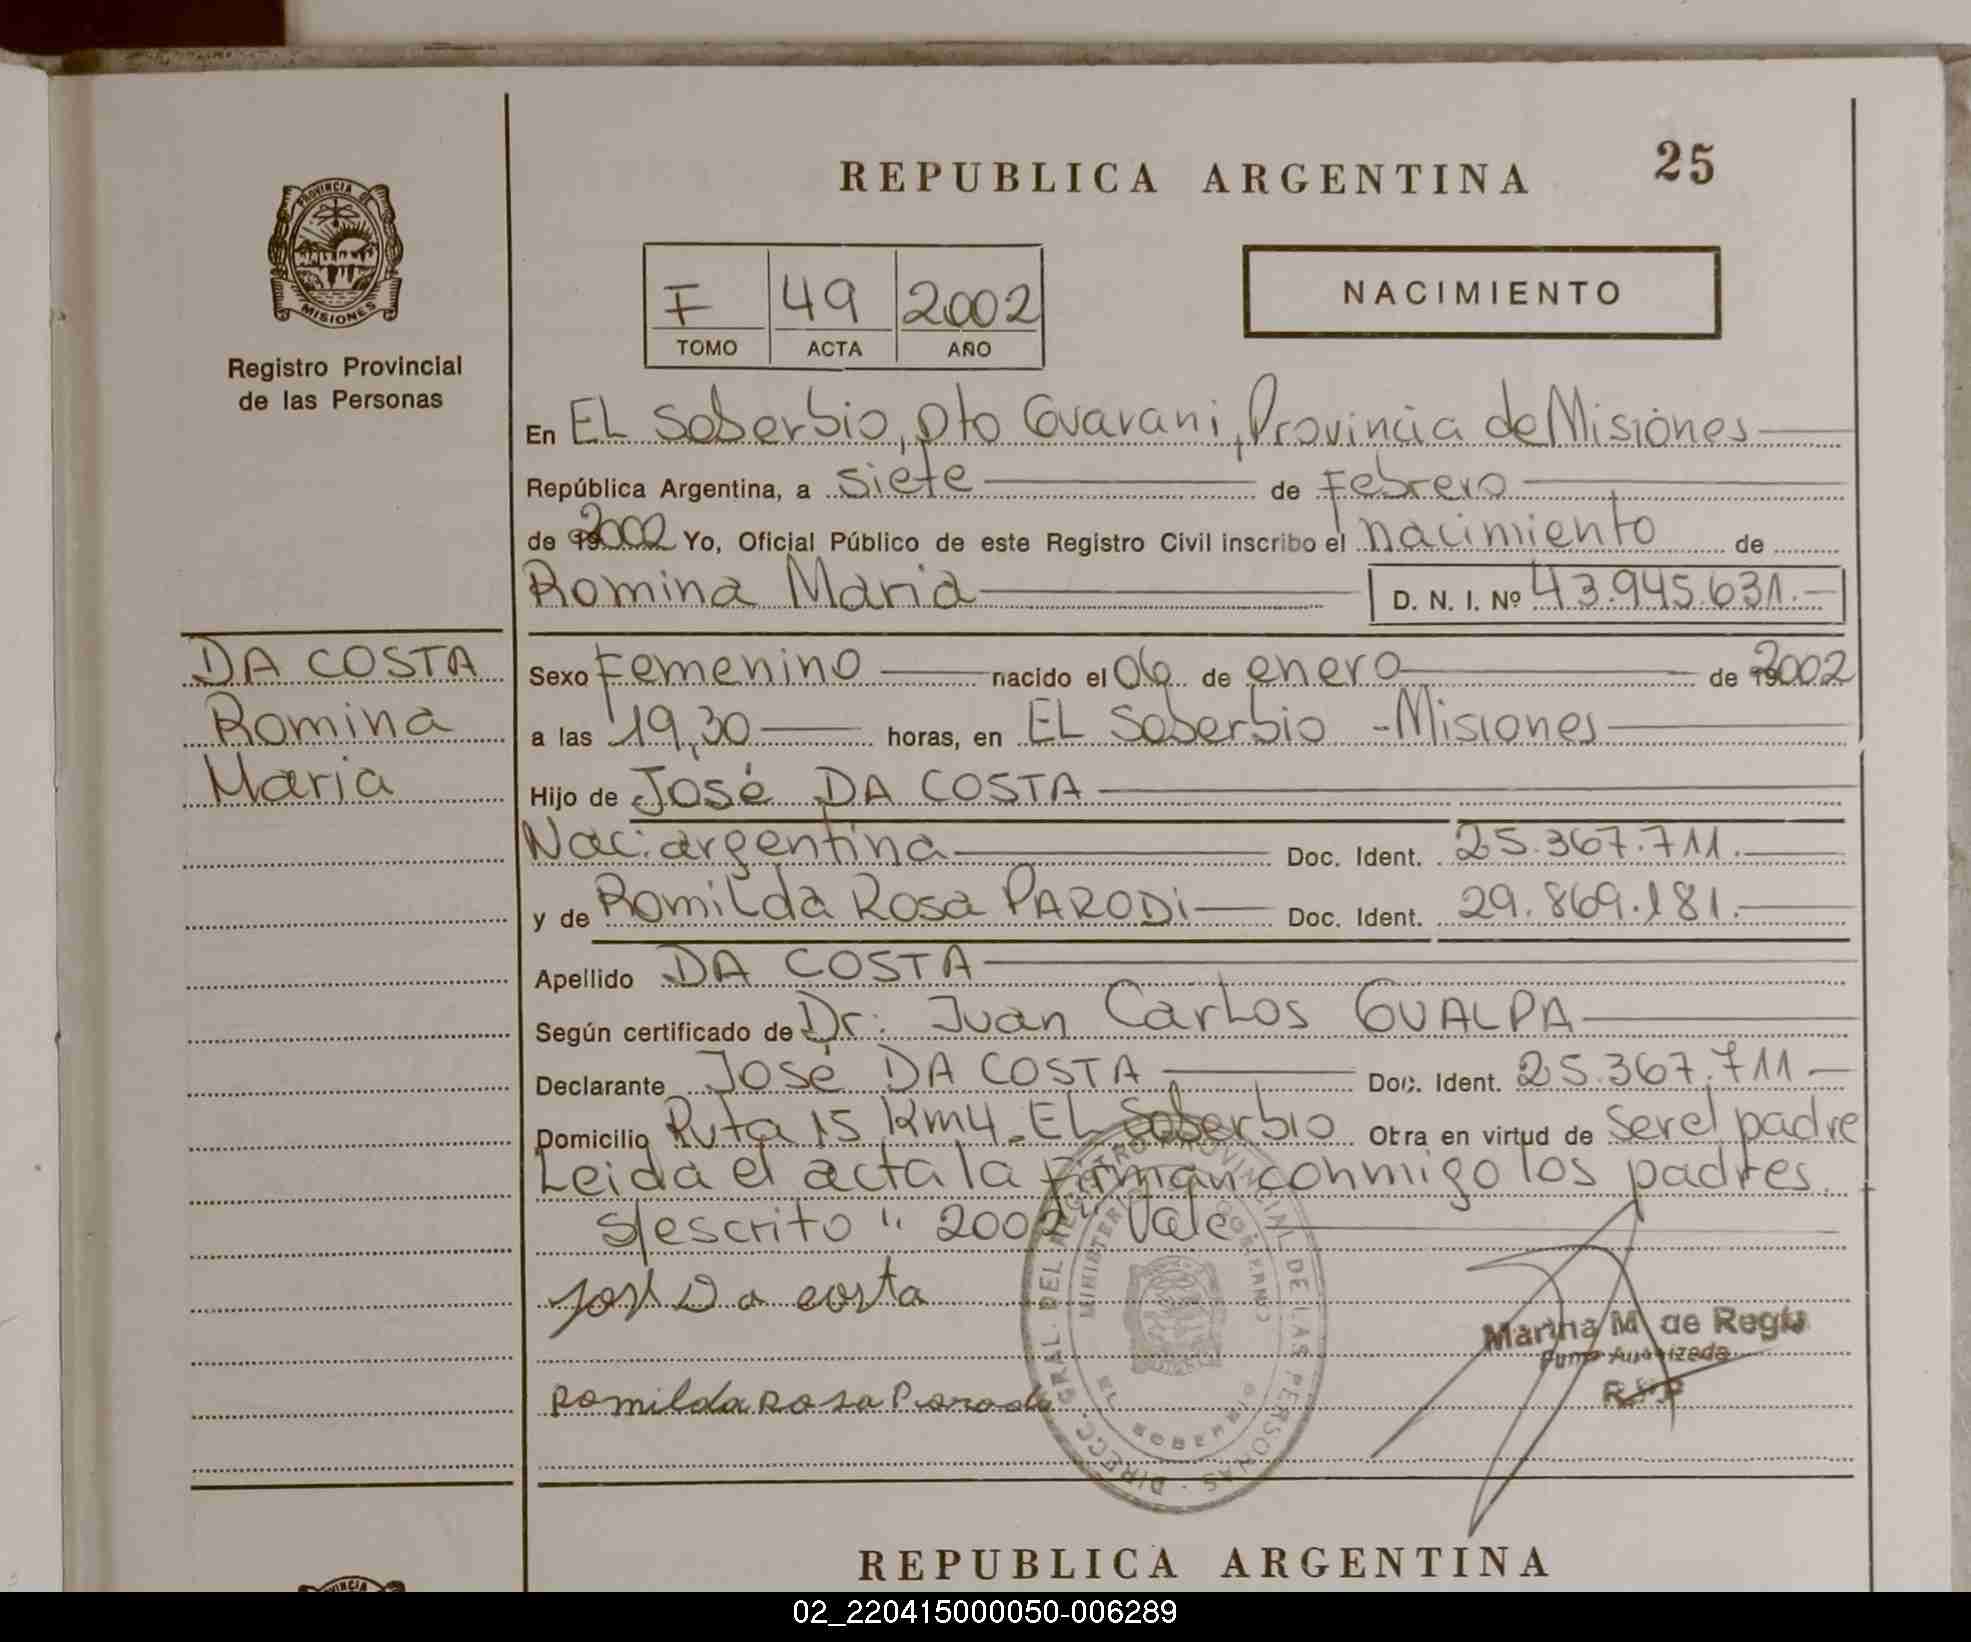 REPUBLICA ARGENTINA 25
PROVINCIA DE
MISIONES
Registro Provincial
de las Personas
F 49 2002
TOMO ACTA AÑO
NACIMIENTO
En EL Soberbio, Dto Guarani, Provincia de Misiones
República Argentina, a siete de Febrero
de 2002 Yo, Oficial Público de este Registro Civil inscribo el nacimiento de
Romina Maria D. N. I. Nº 43.945.631.-
DA COSTA
Romina
Maria
Sexo Femenino nacido el 06 de enero de 2002
a las 19,30 horas, en EL Soberbio - Misiones
Hijo de José DA COSTA
Nac: argentina Doc. Ident. 25.367.711.
y de Romilda Rosa PARODi Doc. Ident. 29.869.181.
Apellido DA COSTA
Según certificado de Dr: Juan Carlos GUALPA
Declarante José DA COSTA Doc. Ident. 25.367.711
Domicilio Ruta 15 Km4. EL Soberbio Otra en virtud de ser el padre
Leida el acta la firman conmigo los padres.
s/escrito " 2002" Vale
José Da costa
Romilda Rosa Parodi
DIRECC. GRAL. DEL REGISTRO PROVINCIAL DE LAS PERSONAS
MINISTERIO DE GOBIERNO
Marina M. de Regis
Firma Autorizada
R.P.P
REPUBLICA ARGENTINA
02_220415000050-006289